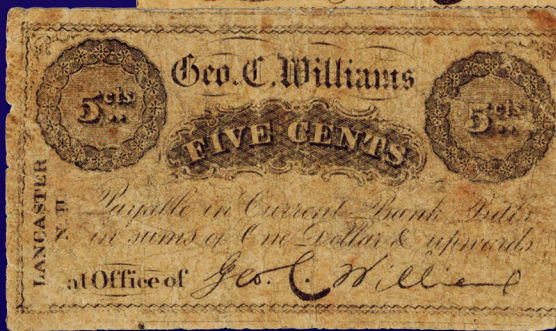 5 cts.
Geo. C. Williams
5 cts.
FIVE CENTS
LANCASTER
N. H.
Payable in Current Bank Bills
in sums of One Dollar & upwards
at Office of Geo. C. Williams